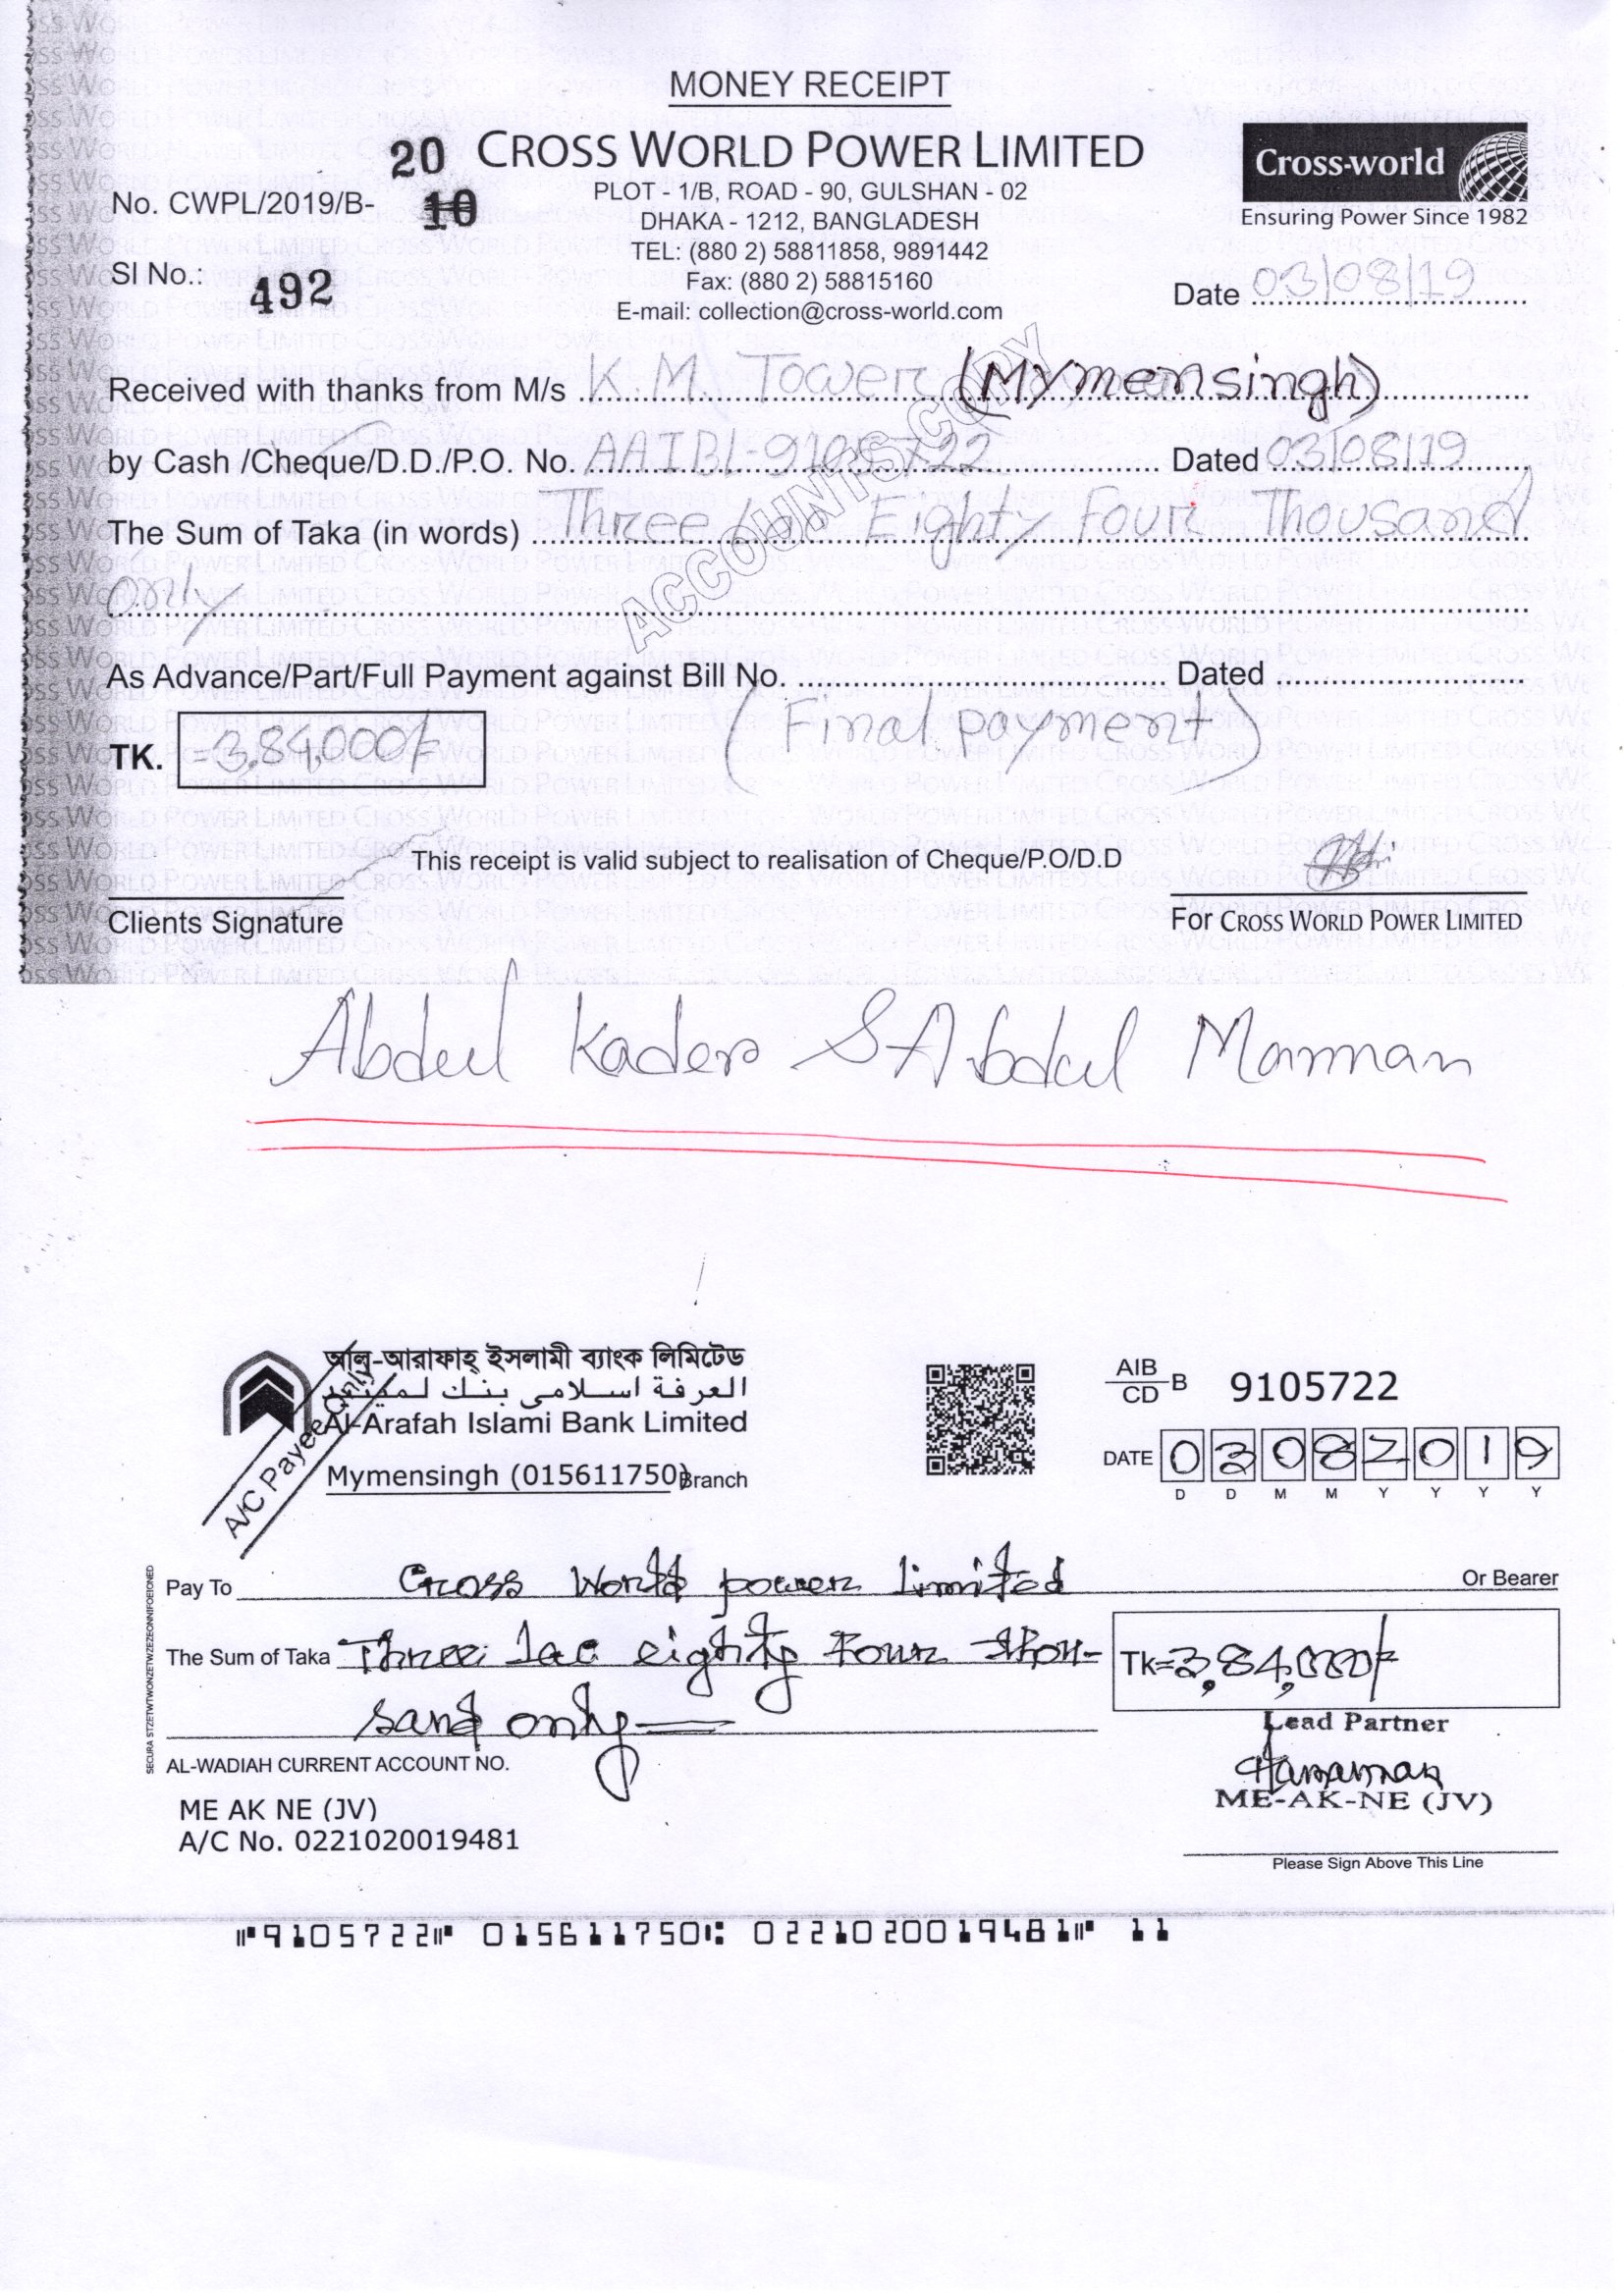 MONEY RECEIPT
CROSS WORLD POWER LIMITED
Cross-world
Ensuring Power Since 1982
20
No. CWPL/2019/B- 10
PLOT - 1/B, ROAD - 90, GULSHAN - 02
DHAKA - 1212, BANGLADESH
TEL: (880 2) 58811858, 9891442
Fax: (880 2) 58815160
E-mail: collection@cross-world.com
Sl No.: 492
Date 03/08/19
ACCOUNTS COPY
Received with thanks from M/s K.M. Tower (Mymensingh)
by Cash /Cheque/D.D./P.O. No. AAIBL-9105722 Dated 03/08/19
The Sum of Taka (in words) Three lac Eighty Four Thousand
only
As Advance/Part/Full Payment against Bill No. Dated
(Final payment)
TK. 3,84,000/=
This receipt is valid subject to realisation of Cheque/P.O/D.D
Clients Signature
For CROSS WORLD POWER LIMITED
Abdul Kader & Abdul Mannan
আল্-আরাফাহ্ ইসলামী ব্যাংক লিমিটেড
العرفة اسلامى بنك لميتيد
Al-Arafah Islami Bank Limited
Mymensingh (015611750) Branch
A/C Payee Only
AIB
CD B 9105722
DATE 03082019
D D M M Y Y Y Y
Pay To Cross World power limited Or Bearer
The Sum of Taka Three lac eighty Four thou-
sand only
TK=3,84,000/=
Lead Partner
ME-AK-NE (JV)
Please Sign Above This Line
AL-WADIAH CURRENT ACCOUNT NO.
ME AK NE (JV)
A/C No. 0221020019481
9105722 015611750 0221020019481 11